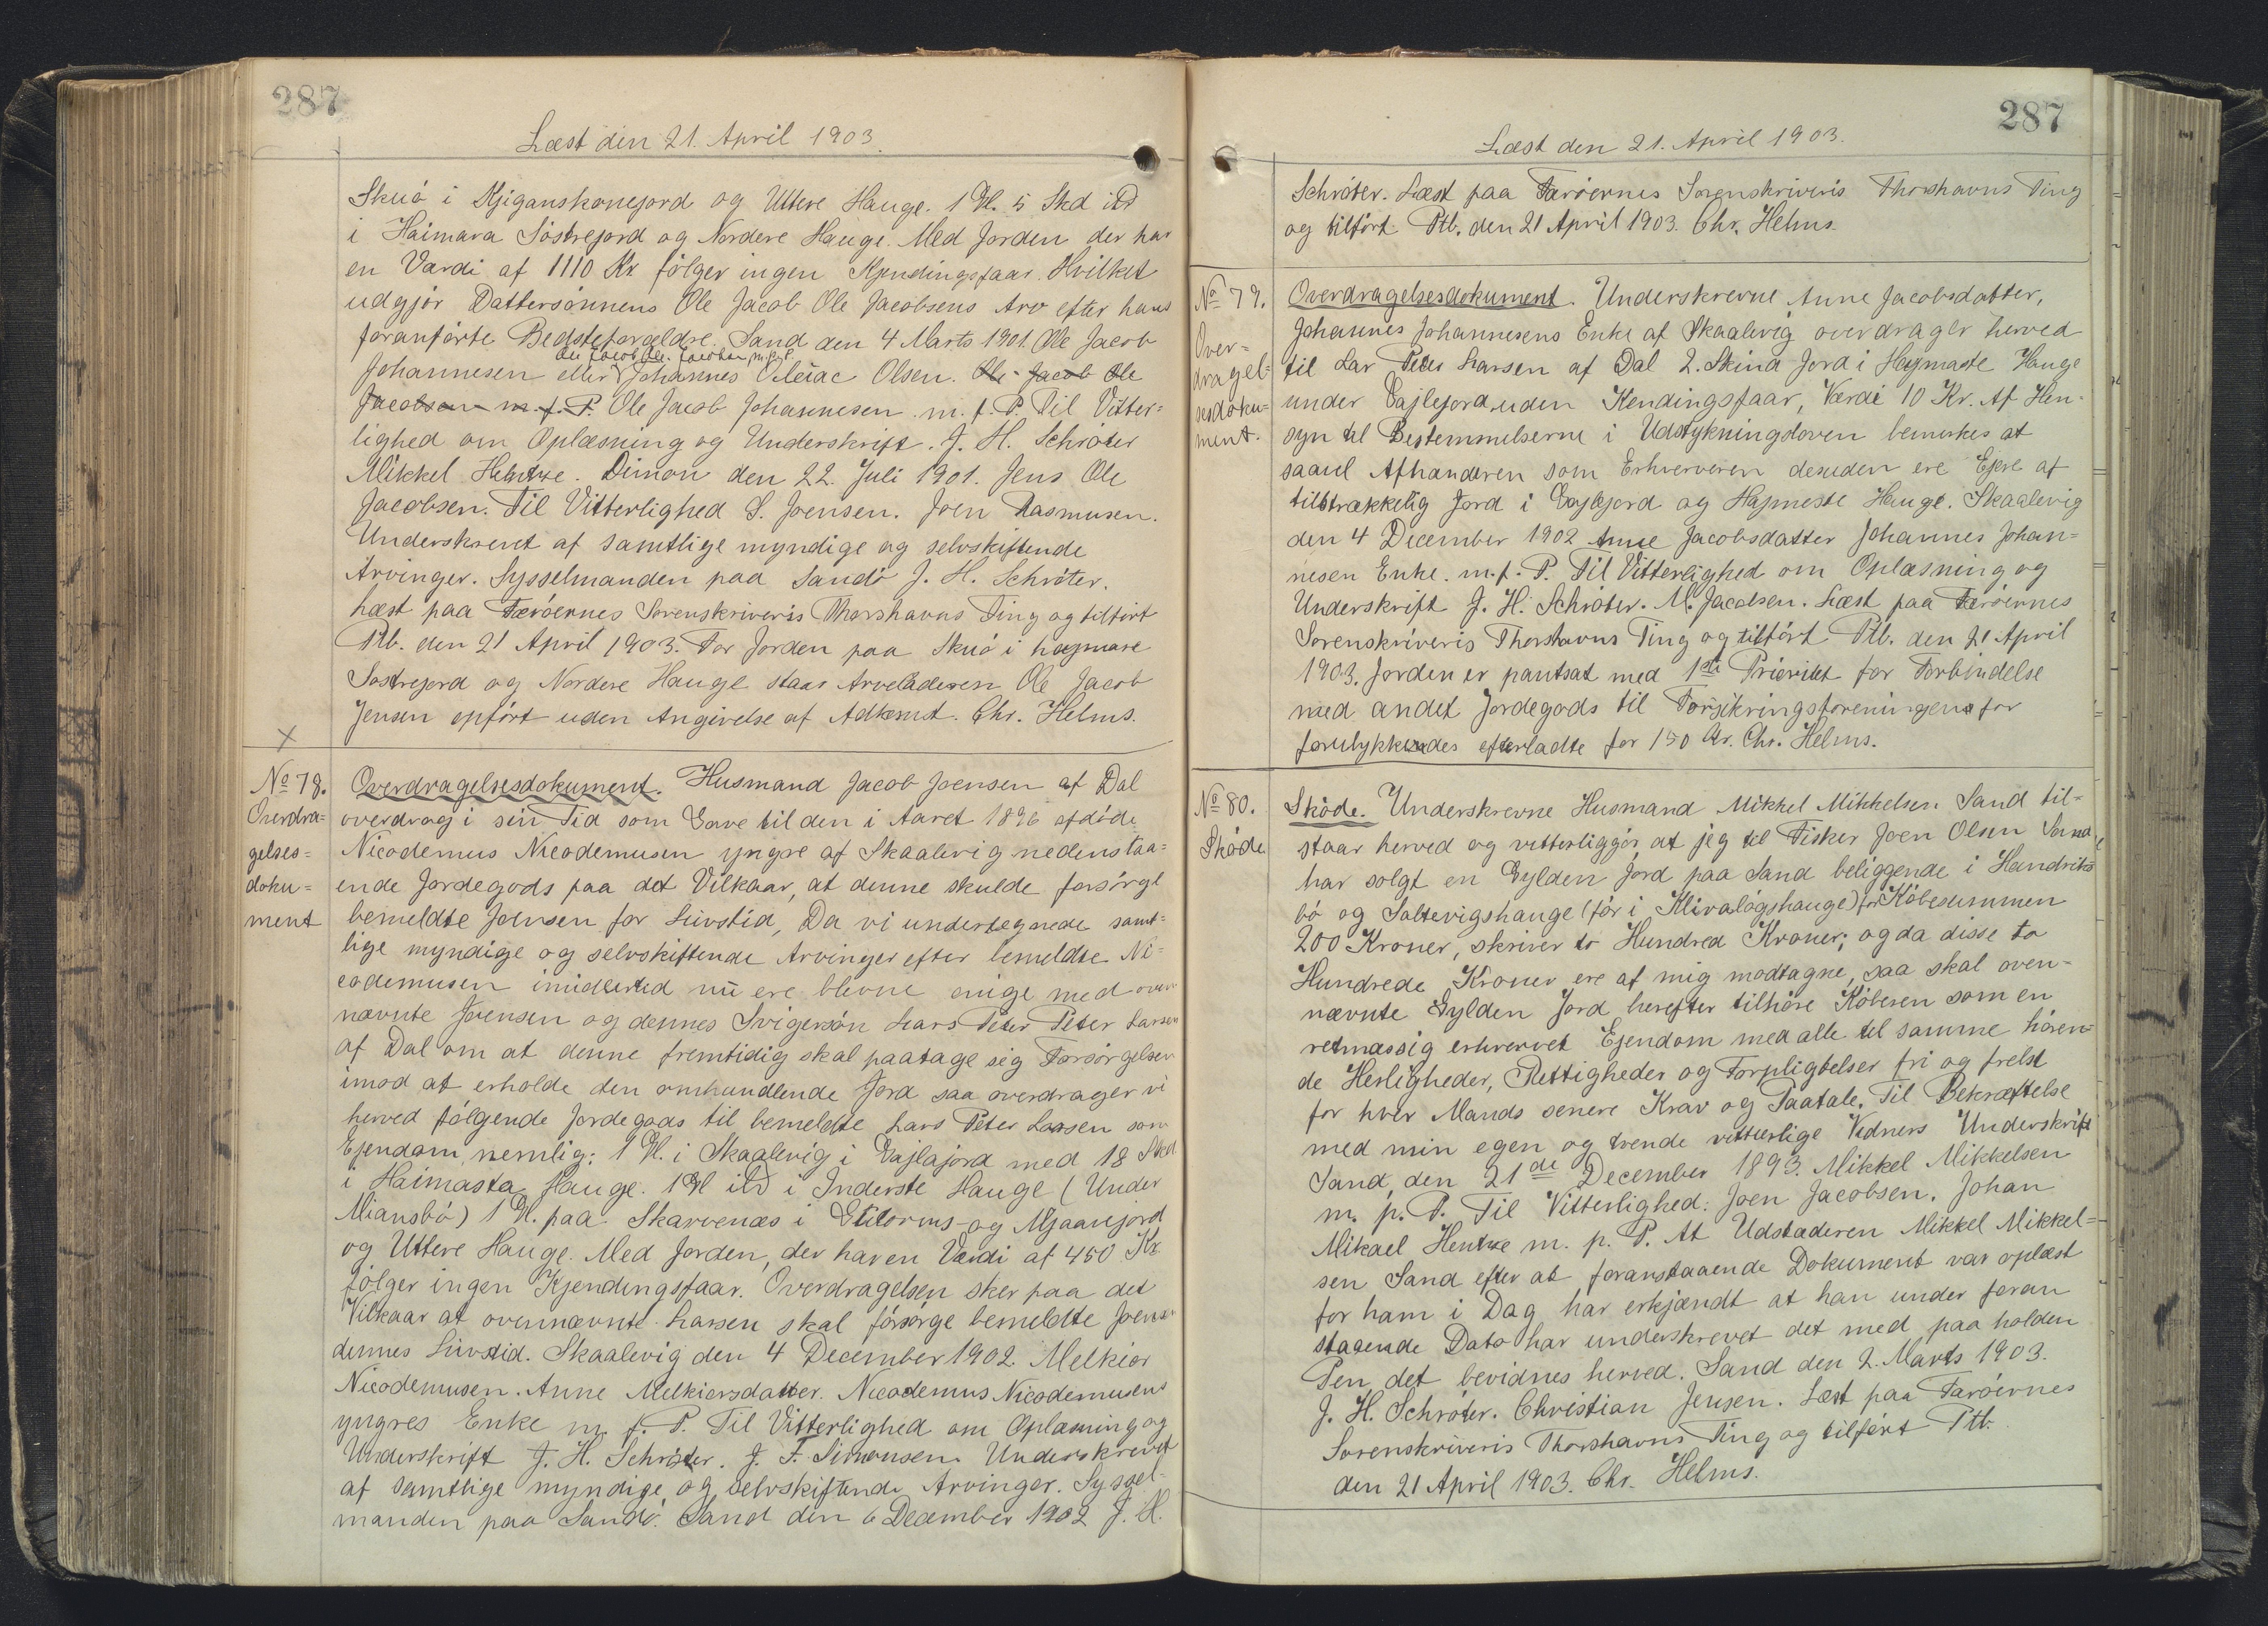 287
Læst den 21. April 1903.
Skuö i Kjiganskonejord og Uttere Hauge. 1 Gl. 5 Skd ibd
i Haimara Söstrejord og Nordere Hauge. Med Jorden der har
en Værdi af 1110 Kr fölger ingen Kjendingsfaar. Hvilket
udgjör Dattersönnens Ole Jacob Ole Jacobsens Arv efter hans
foranförte Bedsteforældre. Sand den 4 Marts 1901. Ole Jacob
Ole Jacob Ole Jacobsen m.f.P.
Johannesen eller Johannes Oleiac Olsen. Ole Jacob Ole
Jacobsen m. f. P. Ole Jacob Johannesen m. f. P. Til Vitter=
lighed om Oplæsning og Underskrift. J. H. Schröter
Mikkel Hentze. Dimon den 22. Juli 1901. Jens Ole
Jacobsen. Til Vitterlighed S. Joensen. Joen Rasmusen.
Underskrevet af samtlige myndige og selvskiftende
Arvinger. Sysselmanden paa Sandö J. H. Schröter.
Læst paa Færöernes Sorenskriveris Thorshavns Ting og tilfört
Ptb. den 21 April 1903. For Jorden paa Skuö i haymare
Söstrejord og Nordere Hauge staar Arveladeren Ole Jacob
Jensen opfört uden Angivelse af Adkomst. Chr. Helms.
×
No 78.
Overdra=
gelses=
doku=
ment
Overdragelsesdokument. Husmand Jacob Joensen af Dal
overdrog i sin Tid som Gave til den i Aaret 1896 afdöde
Nicodemus Nicodemusen yngre af Skaalevig nedenstaa=
ende Jordegods paa det Vilkaar, at denne skulde forsörge
bemeldte Joensen for Livstid, Da vi undertegnede samt=
lige myndige og selvskiftende Arvinger efter bemeldte Ni=
codemusen imidlertid nu ere blevne enige med oven
nævnte Joensen og dennes Svigersön Lars Peter Peter Larsen
af Dal om at denne fremtidig skal paatage sig Forsörgelsen
imod at erholde den omhandlende Jord saa overdrager vi
herved fölgende Jordegods til bemeldte Lars Peter Larsen som
Ejendom, nemlig: 1 Gl. i Skaalevig i Gajlajord med 18 Skd
i Haimasta Hauge. 1 Gl ibd i Inderste Hauge (Under
Miansbö) 1 Gl. paa Skarvenæs i Guttorms- og Mjaanejord
og Uttere Hauge. Med Jorden, der har en Værdi af 450 Kr
fölger ingen Kjendingsfaar. Overdragelsen sker paa det
Vilkaar at ovennævnte Larsen skal försörge bemeldte Joensen
dennes Livstid. Skaalevig den 4 December 1902. Melkior
Nicodemusen. Anne Melkiorsdatter. Nicodemus Nicodemusens
yngres Enke m. f. P. Til Vitterlighed om Oplæsning og
Underskrift J. H. Schröter. J. F. Simonsen. Underskrevet
af samtlige myndige og selvskiftende Arvinger. Syssel=
manden paa Sandö. Sand den 6 December 1902 J. H.
287
Læst den 21. April 1903.
Schröter. Læst paa Færöernes Sorenskriveris Thorshavns Ting
og tilfört Ptb. den 21 April 1903. Chr. Helms.
No 79.
Over=
dragel=
sesdoku=
ment.
Overdragelsesdokument. Underskrevne Anne Jacobsdatter,
Johannes Johannesens Enke af Skaalevig overdrager herved
til Lar Peter Larsen af Dal 2. Skind Jord i Hajmaste Hauge
under Gajlejord uden Kendingsfaar, Værdi 10 Kr. Af Hen-
syn til Bestemmelserne i Udstykningsloven bemærkes at
saavel Afhænderen som Erhververen desuden ere Ejere af
tilstrækkelig Jord i Gajlejord og Hajmeste Hauge. Skaalevig
den 4 December 1902 Anne Jacobsdatter Johannes Johan=
nesen Enke. m. f. P. Til Vitterlighed om Oplæsning og
Underskrift J. H. Schröter. M. Jacobsen. Læst paa Færöernes
Sorenskriveris Thorshavns Ting og tilfört Ptb. den 21 April
1903. Jorden er pantsat med 1ste Prioritet for Forbindelse
med andet Jordegods til Forsikringsforeningen for
forulykkedes efterladte for 150 Kr. Chr. Helms.
No 80.
Sköde
Sköde. Underskrevne Husmand Mikkel Mikkelsen Sand til=
staar herved og vitterliggör at jeg til Fisker Joen Olsen Sand
har solgt en Gylden Jord paa Sand beliggende i Hendriks
bö og Saltevigshauge (för i Klivalögshauge) for Köbesummen
200 Kroner, skriver to Hundred Kroner; og da disse to
Hundrede Kroner ere af mig modtagne, saa skal oven-
nævnte Gylden Jord herefter tilhöre Köberen som en
retmæssig erhvervet Ejendom med alle til samme hören=
de Herligheder, Rettigheder og Forpligtelser fri og frelst
for hver Mands senere Krav og Paatale. Til Bekræftelse
med min egen og trende vitterlige Vidners Underskrift
Sand, den 21de December 1893. Mikkel Mikkelsen
m. p. P. Til Vitterlighed: Joen Jacobsen. Johan
Mikael Hentze m. p. P. At Udstæderen Mikkel Mikkel=
sen Sand efter at foranstaaende Dokument var oplæst
for ham i Dag har erkjændt at han under foran
staaende Dato har underskrevet det med paa holden
Pen det bevidnes herved. Sand den 2. Marts 1903.
J. H. Schröter. Christian Jensen. Læst paa Færöernes
Sorenskriveris Thorshavns Ting og tilfört Ptb.
den 21 April 1903. Chr. Helms.